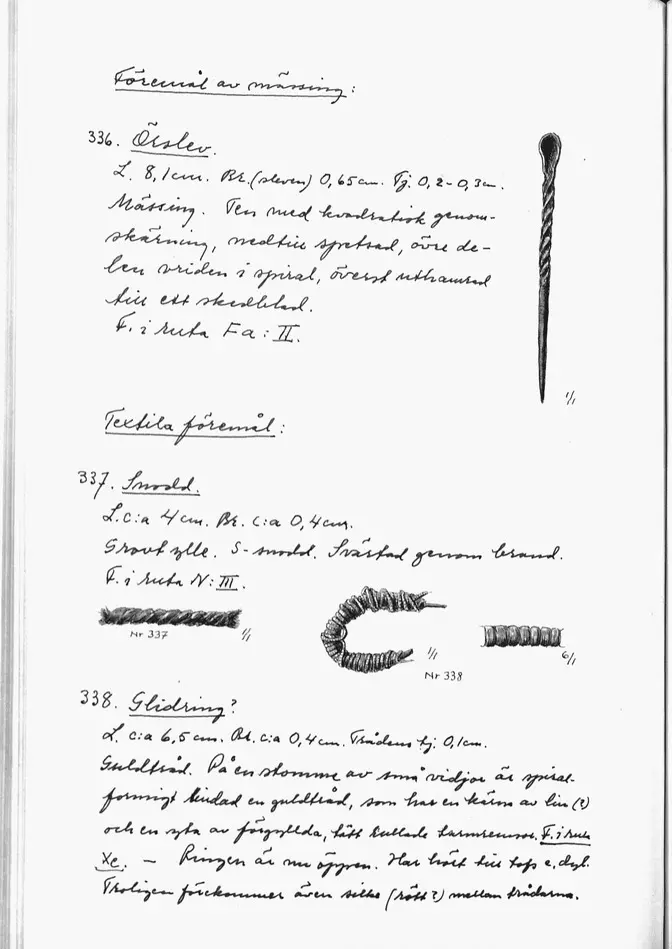 Föremål av mässing:
336. Örslev.
L. 8,1cm. Br.(sleven) 0,65cm. Tj. 0,2-0,3cm.
Mässing. Ten med kvadratisk genom-
skärning, nedtill spetsad, övre de-
len vriden i spiral, överst uthamrad
till ett skedblad.
F. i ruta Fa: II.
1/1
Textila föremål:
337. Snodd.
L. c:a 4 cm. Br. c:a 0,4cm.
Grovt ylle. S-snodd. Svärtad genom brand.
F. i ruta N: III.
Nr 337 1/1
1/1 Nr 338
6/1
338. Glidring?
L. c:a 6,5 cm. Br. c:a 0,4cm. Trådens tj. 0,1cm.
Guldtråd. På en stomme av små vidjor är spiral-
formigt lindad en guldtråd, som har en kärna av lin (?)
och en yta av förgyllda, tätt rullade tarmremsor. F. i ruta
Xc. – Ringen är nu öppen. Har hört till tofs e. dyl.
Troligen förekommer även silke (rött?) mellan trådarna.